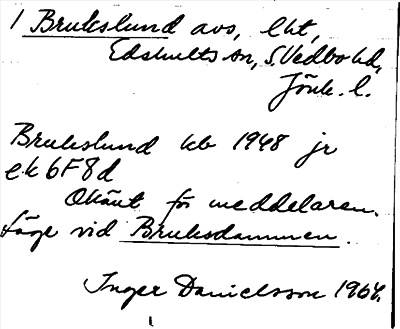 1 Brukslund avs, lht,
Edshults sn, S. Vedbo hd,
Jönk. l.
Brukslund kb 1948 jr
ek 6F8d
Okänt för meddelaren.
Läge vid Bruksdammen.
Inger Danielsson 1964.